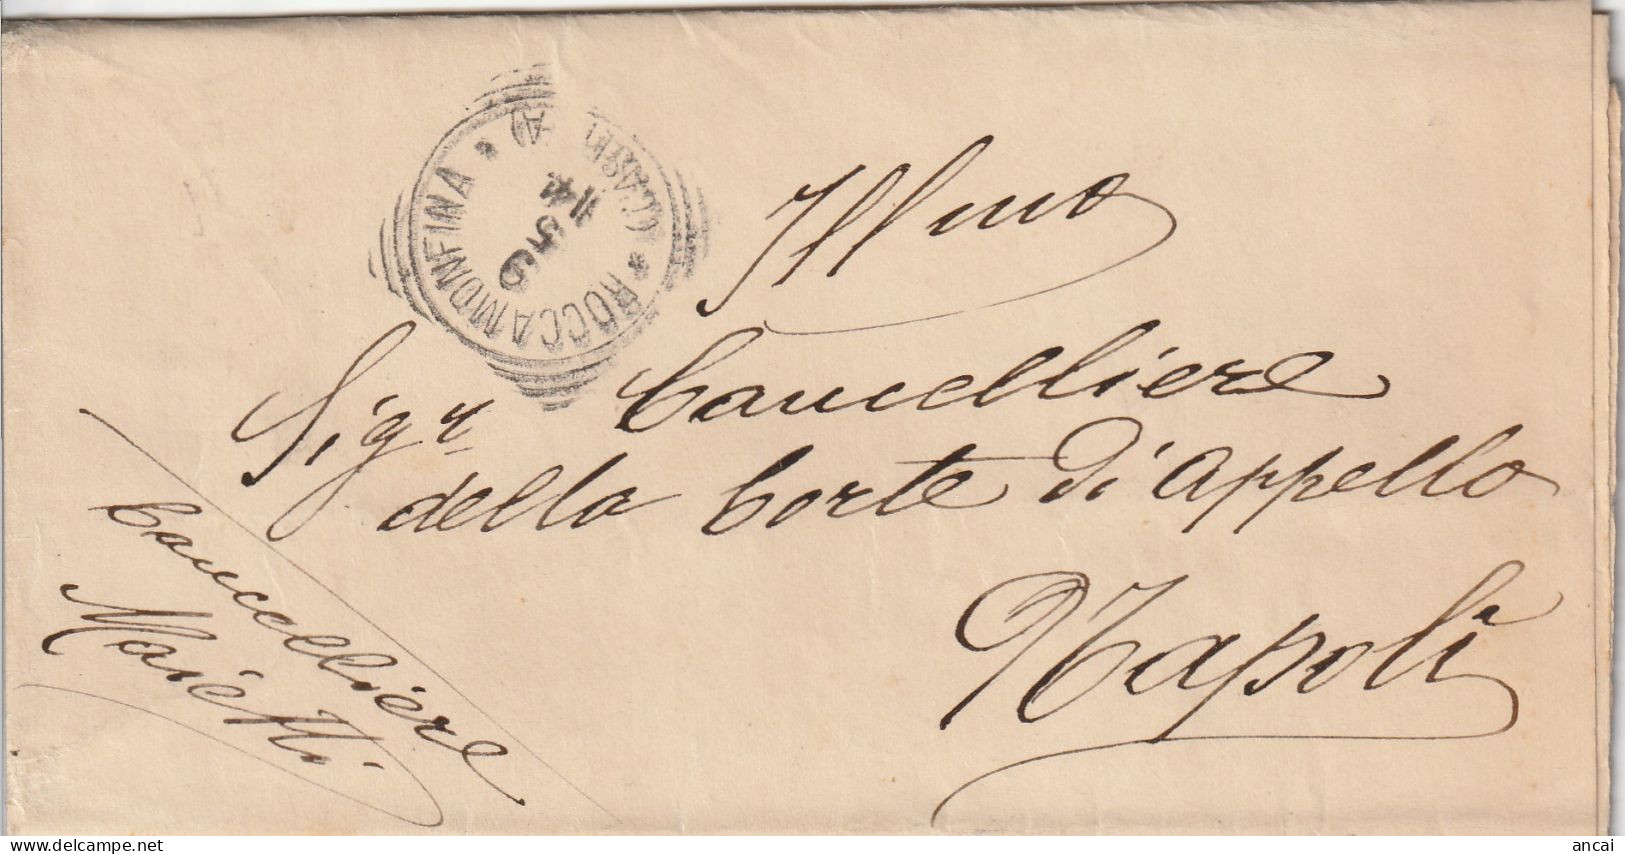 * ROCCAMONFINA *
14 5 9
Illmo
Sigr Cancelliere
della Corte di appello
Napoli
Cancelliere
delcampe.net
ancai